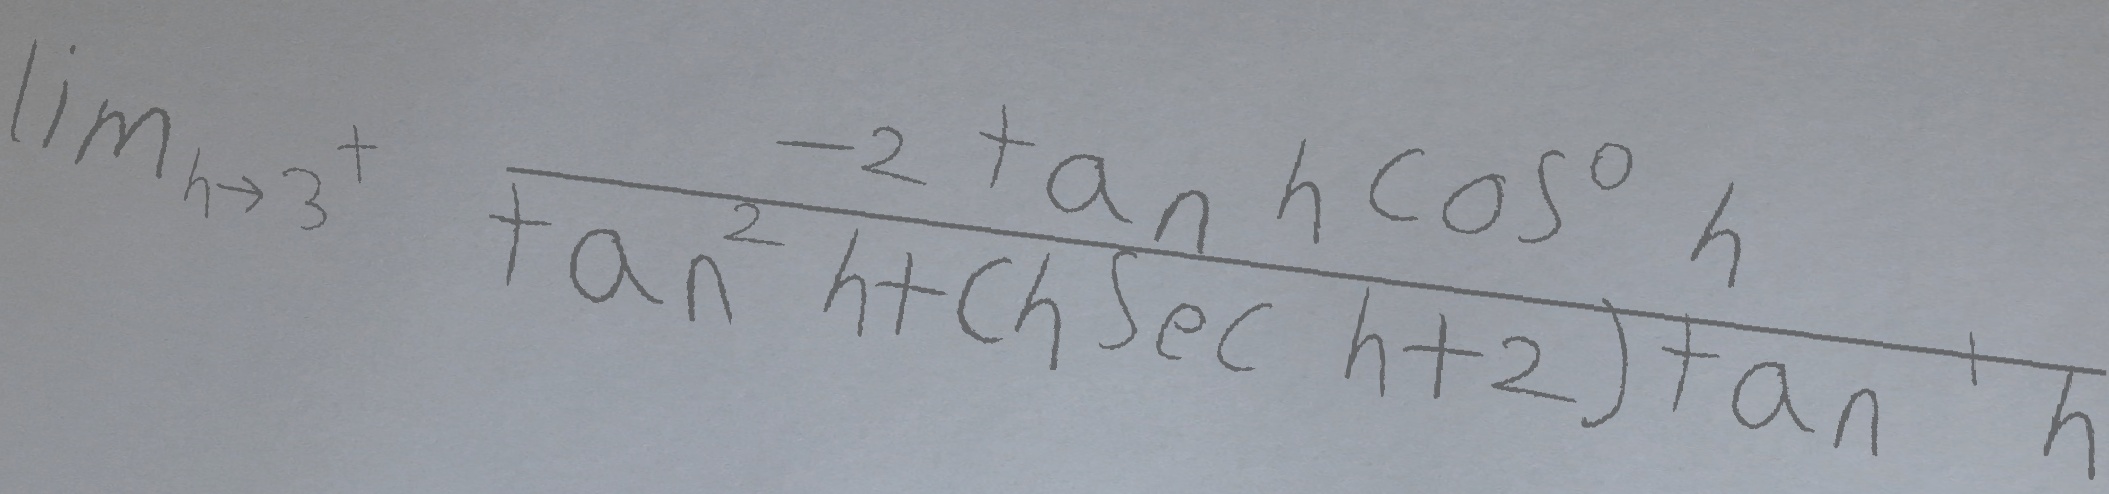 lim_{h→3^+} \frac{-2 tan h cos^0 h}{tan^2 h+(h sec h+2) tan^1 h}